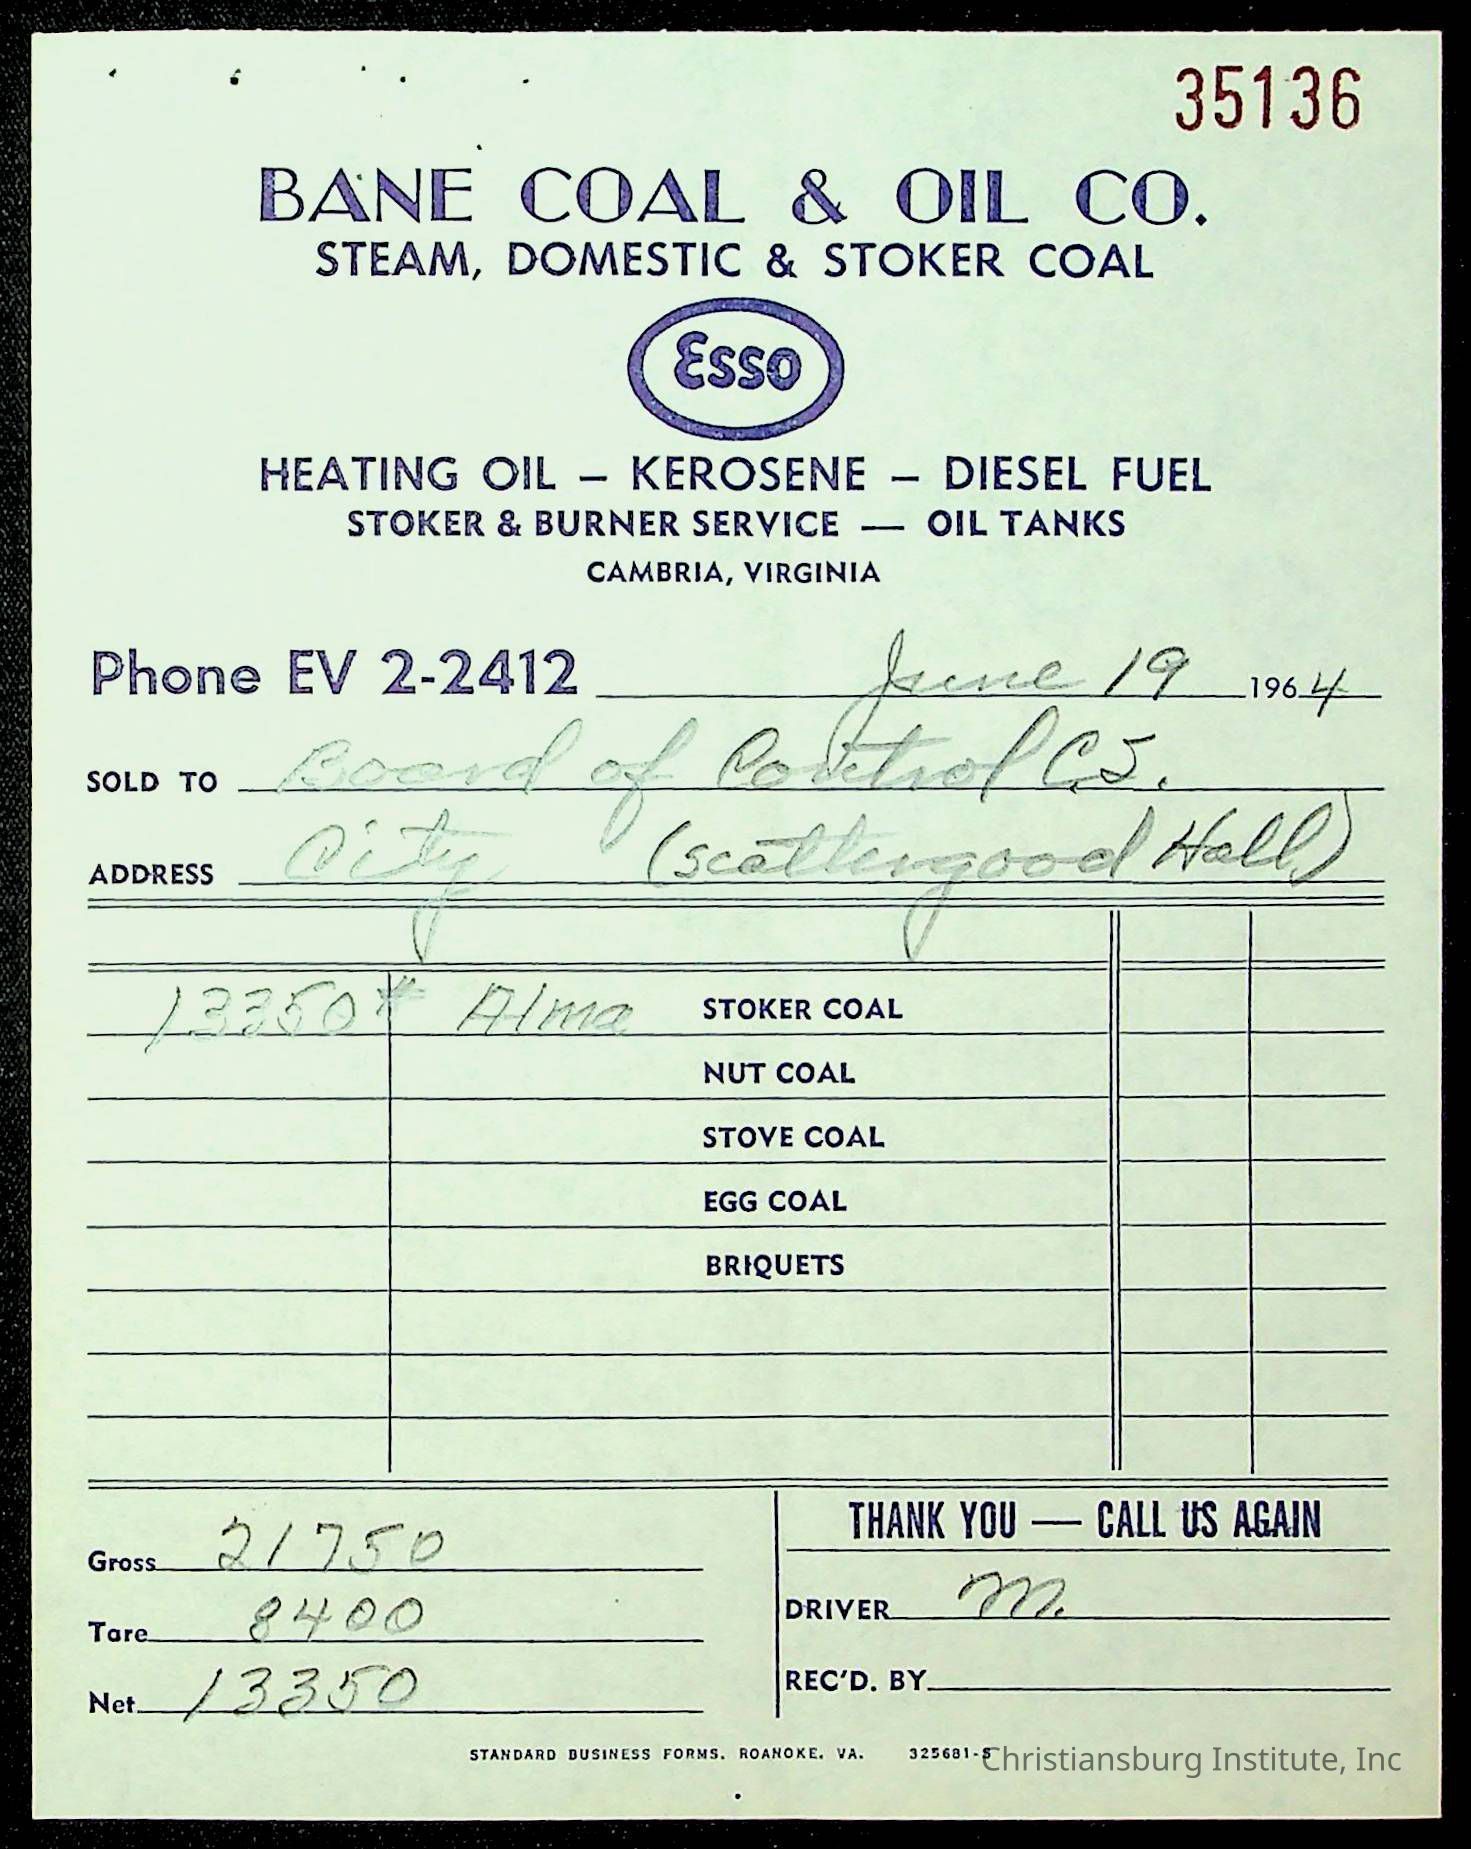 35136
BANE COAL & OIL CO.
STEAM, DOMESTIC & STOKER COAL
Esso
HEATING OIL – KEROSENE – DIESEL FUEL
STOKER & BURNER SERVICE — OIL TANKS
CAMBRIA, VIRGINIA
Phone EV 2-2412 June 19 1964
SOLD TO Board of Control C.I.
ADDRESS City (scattergood Hall)
13350# Alma STOKER COAL
NUT COAL
STOVE COAL
EGG COAL
BRIQUETS
THANK YOU — CALL US AGAIN
Gross 21750
Tare 8400
Net 13350
DRIVER M.
REC'D. BY
STANDARD BUSINESS FORMS. ROANOKE. VA. 325681-S
Christiansburg Institute, Inc